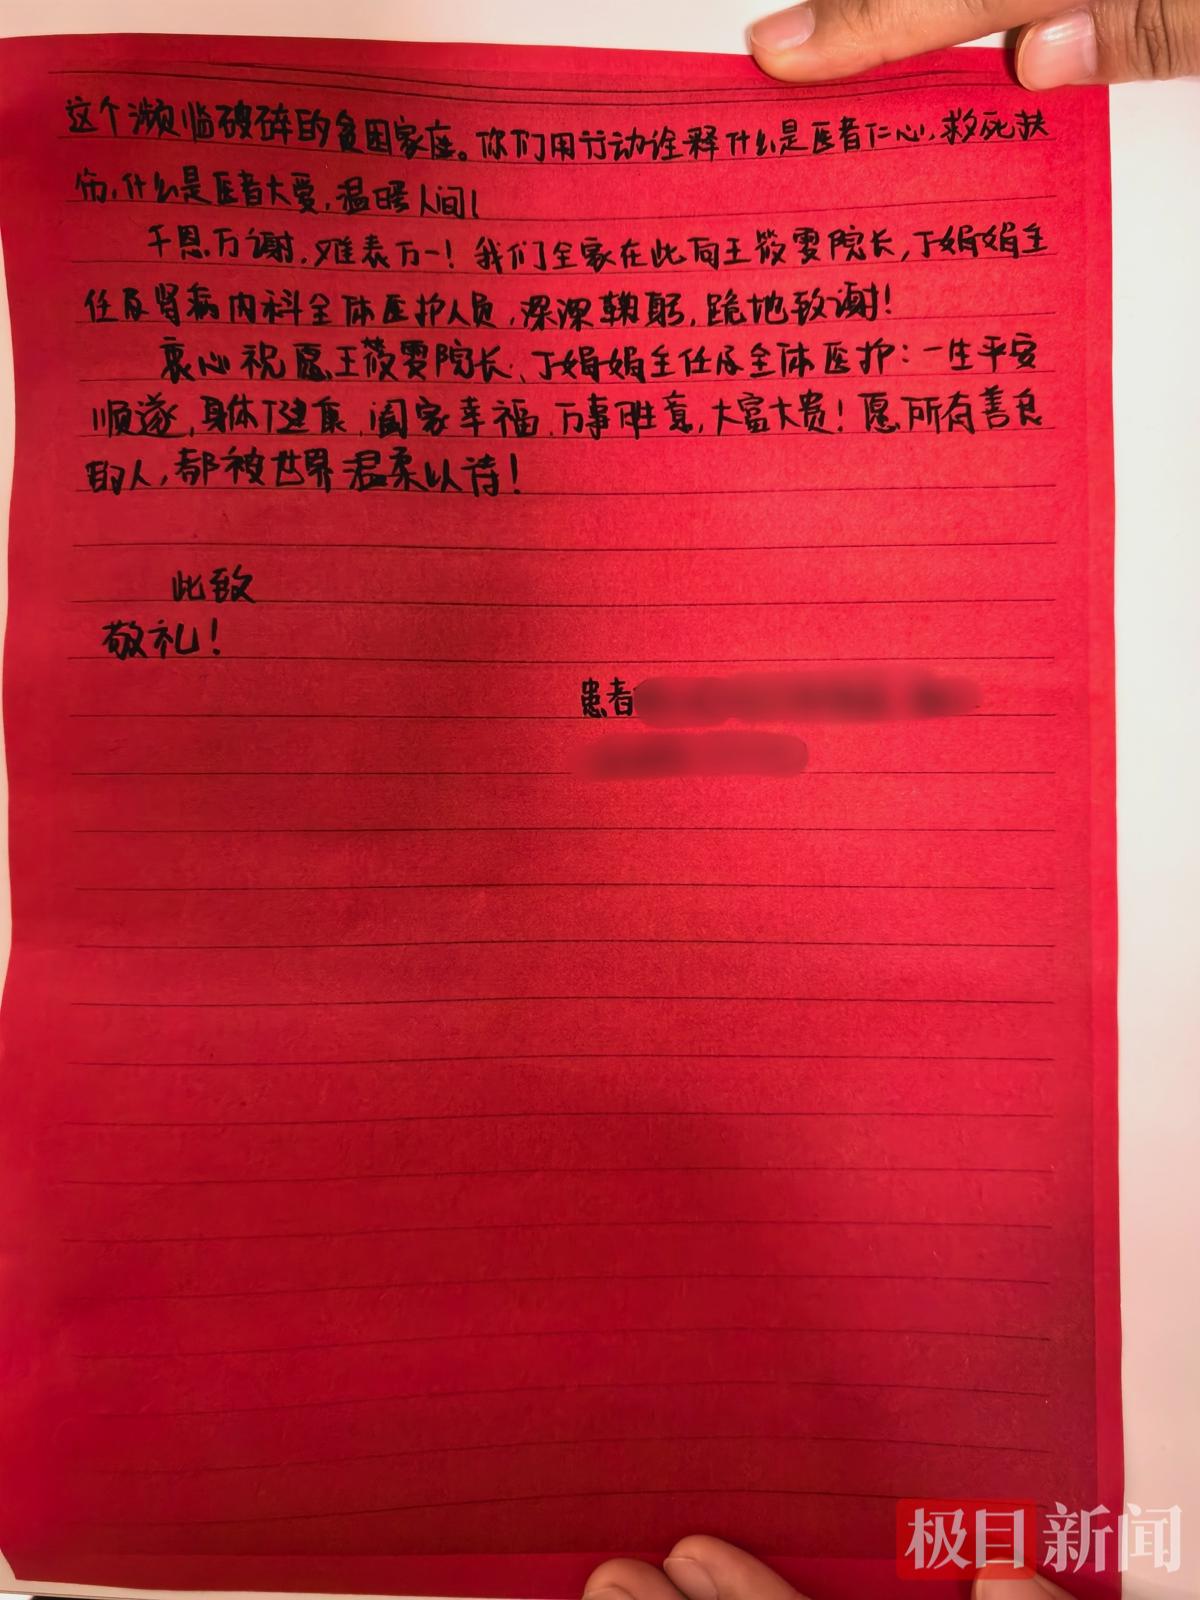 这个濒临破碎的贫困家庭。你们用行动诠释什么是医者仁心,救死扶
伤,什么是医者大爱,温暖人间!
千恩万谢,难表万一!我们全家在此向王筱雯院长,丁娟娟主
任及肾病内科全体医护人员,深深鞠躬,跪地致谢!
衷心祝愿王筱雯院长、丁娟娟主任及全体医护:一生平安
顺遂,身体健康,阖家幸福,万事胜意,大富大贵!愿所有善良
的人,都被世界温柔以待!
此致
敬礼!
患者
极目新闻